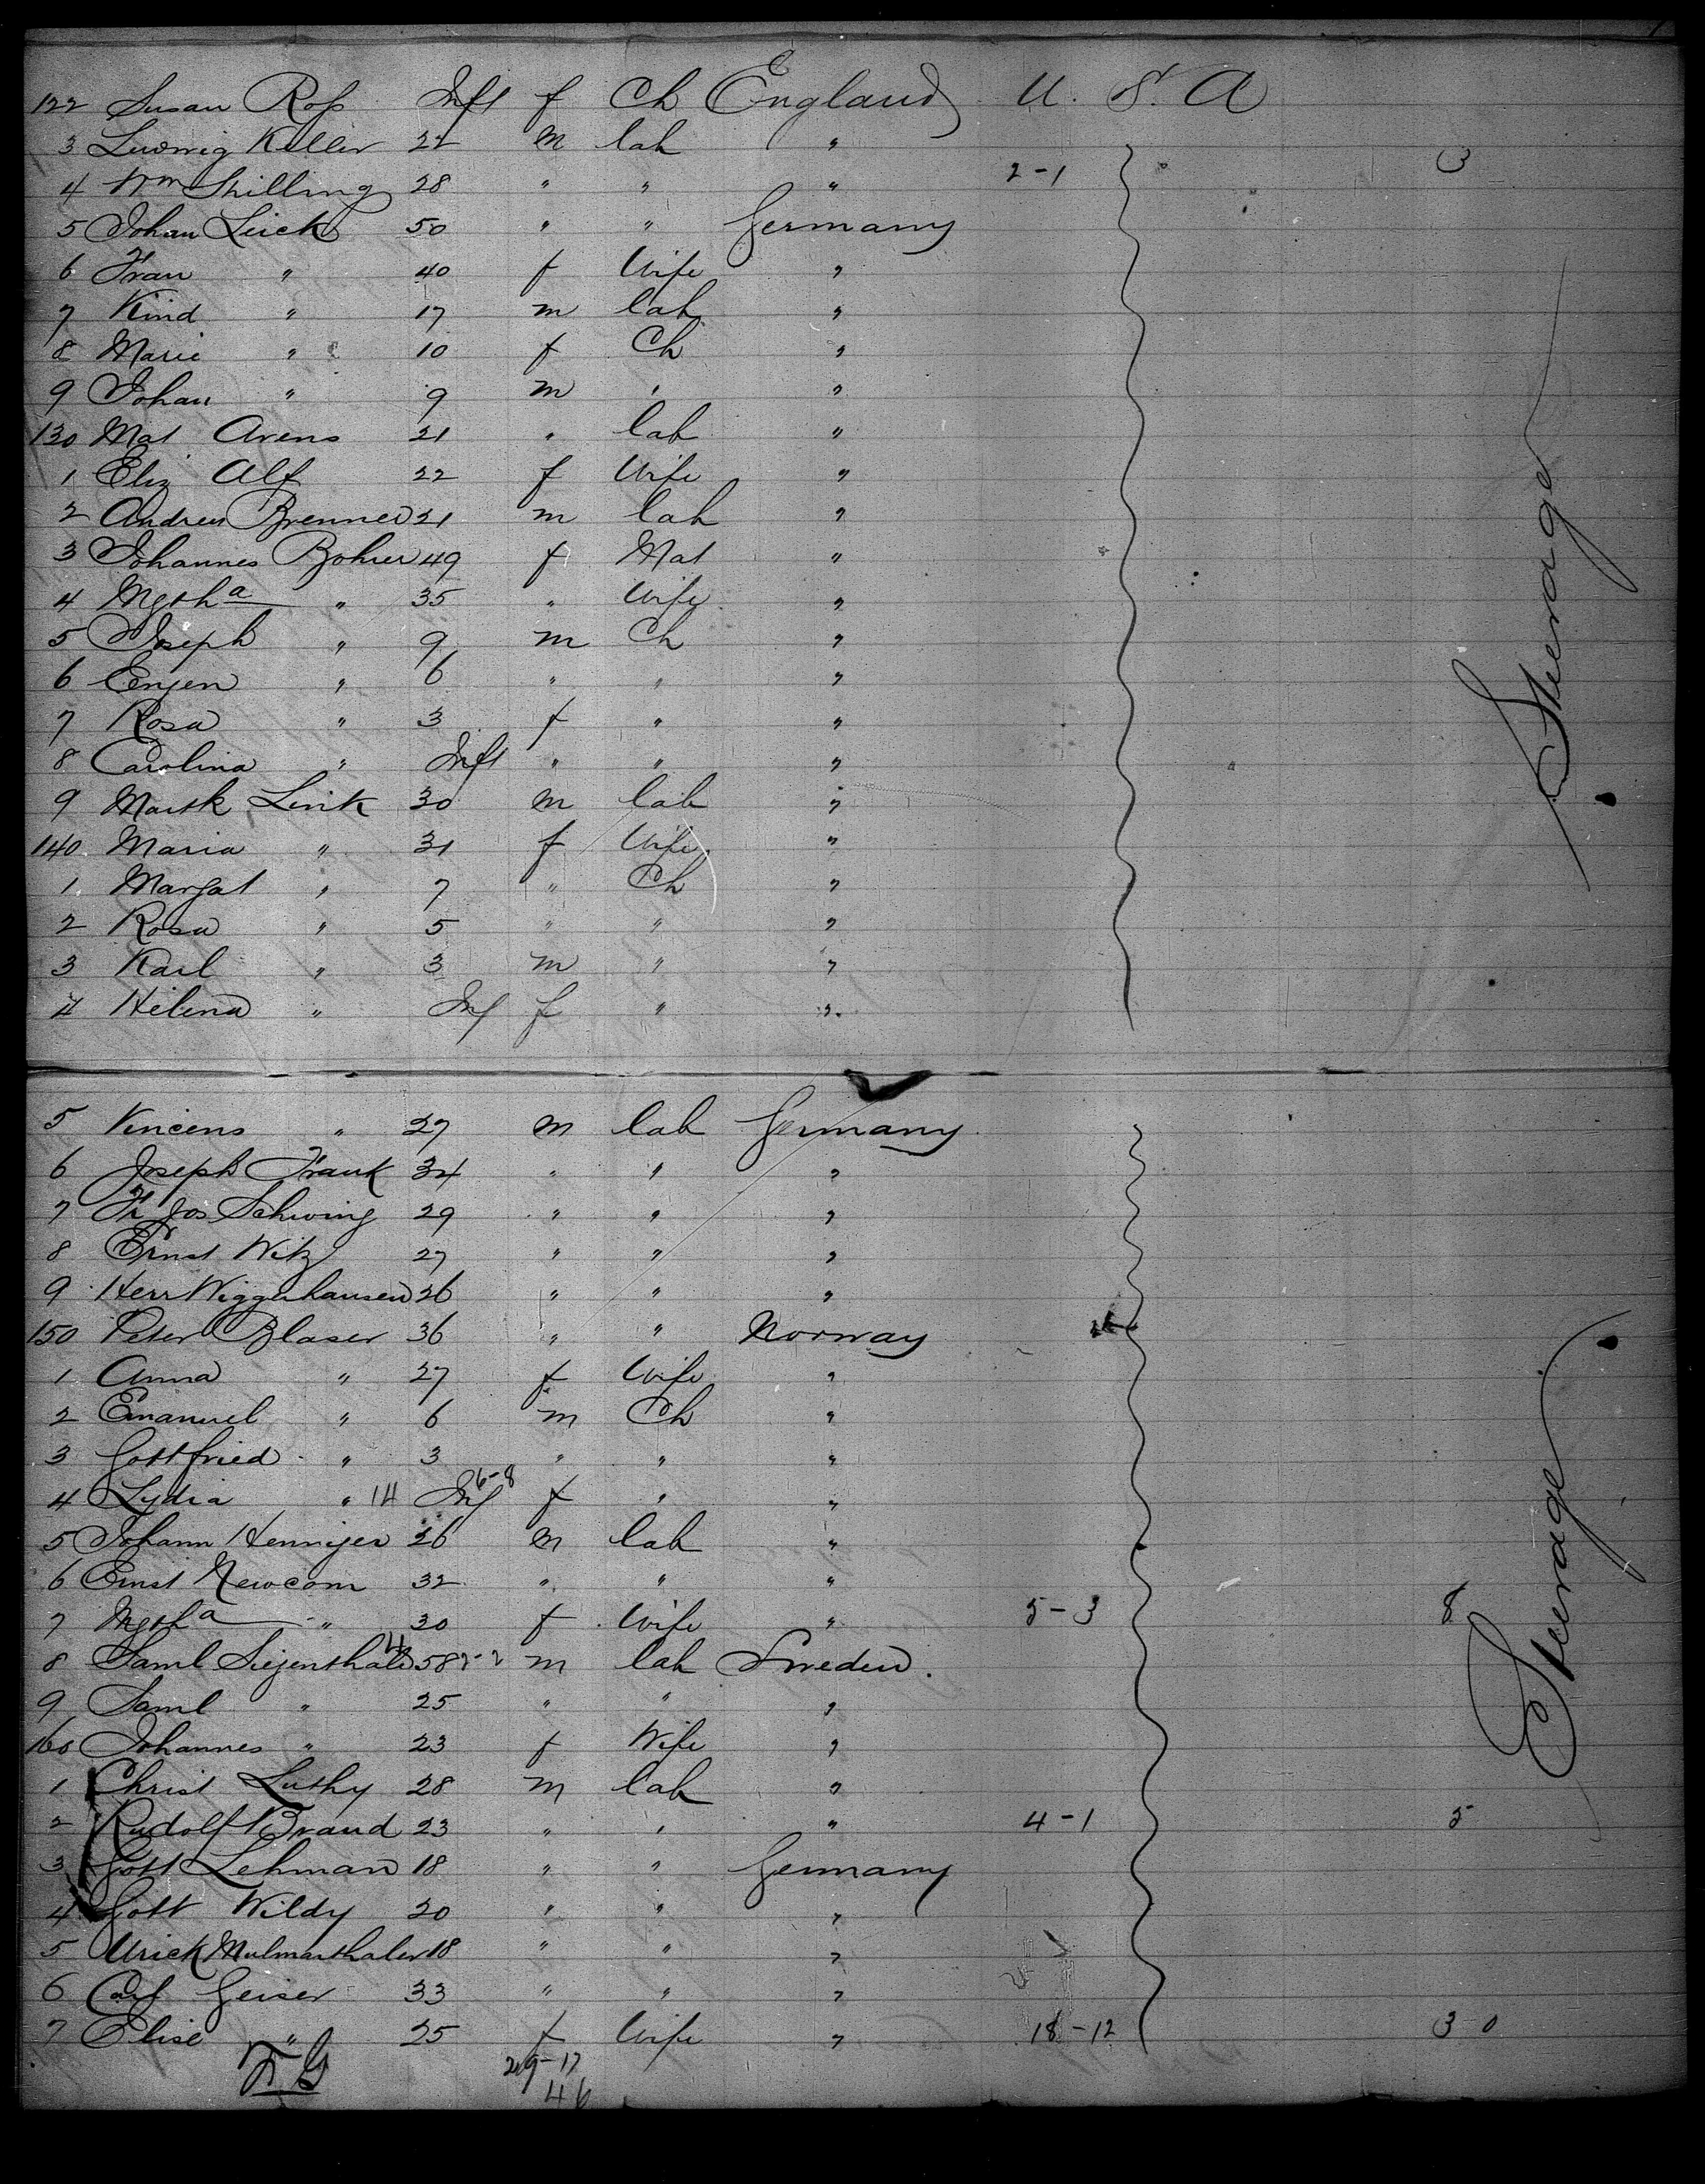 122 Susan Ross Inft f Ch England U. S. A
3 Ludwig Keller 22 m lab "
4 Wm Shilling 28 " " " 2-1 3
5 Johan Leick 50 " " Germany
6 Frau " 40 f Wife "
7 Kind " 17 m lab "
8 Marie " 10 f Ch "
9 Johan " 9 m " "
130 Mat Arens 21 " lab "
1 Eliz Alf 22 f Wife "
2 Andreu Brenner 21 m lab "
3 Johannes Bohrer 49 f Mat "
4 Mgtha " 35 " Wife "
5 Joseph " 9 m Ch "
6 Eugen " 6 " " "
7 Rosa " 3 f " "
8 Carolina " Inft " " "
9 Link 30 m lab "
140 Maria " 31 f Wife "
1 Margat " 7 " Ch "
2 Rosa " 5 " " "
3 Karl " 3 m " "
4 Helena " Inf f " "
Steerage
5 Vincens " 27 m lab Germany
6 Joseph Frank 34 " " "
7 Fr Jos Schwing 29 " " "
8 Ernst Witz 27 " " "
9 Herr Wiggerhausen 26 " " "
150 Peter Blaser 36 " " Norway
1 Anna " 27 f Wife "
2 Emanuel " 6 m Ch "
3 Gottfried " 3 " " "
4 Lydia " 14 Inf 6-8 f " "
5 Johann Henniger 26 m lab "
6 Ernst Newcom 32 " " "
7 Mgtha " 30 f Wife " 5-3 8
8 Saml Siegenthaler 58 2-2 m lab Sweden.
9 Saml " 25 " " "
160 Johannes " 23 f Wife "
1 Christ Luthy 28 m lab "
2 Rudolf Brand 23 " " " 4-1 5
3 Gott Lehman 18 " " Germany
4 Gott Wildy 20 " " "
5 Urick 18 " " "
6 Carl Geiser 33 " " "
7 Elise " 25 f Wife " 18-12 30
Steerage
29-17
46